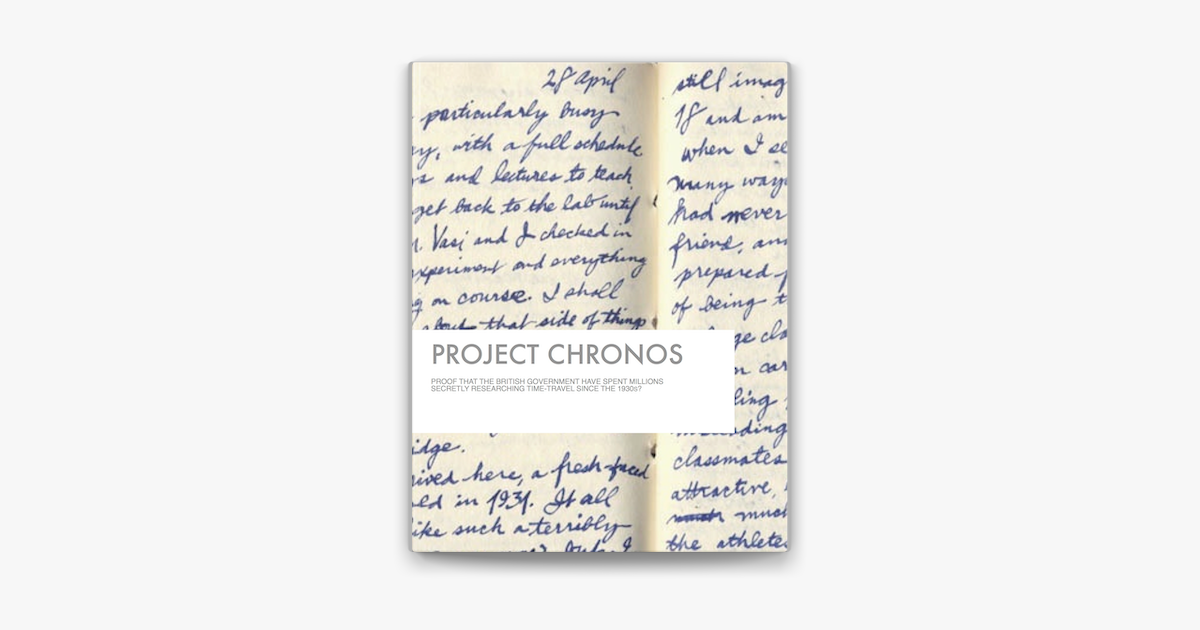 28 April
particularly busy
ay, with a full schedule
s and lectures to teach
get back to the lab until
. Vasi and I checked in
experiment and everything
g on course. I shall
about that side of things
PROJECT CHRONOS
PROOF THAT THE BRITISH GOVERNMENT HAVE SPENT MILLIONS
SECRETLY RESEARCHING TIME-TRAVEL SINCE THE 1930s?
idge.
ived here, a fresh-faced
ed in 1931. It all
like such a terribly
still imag
18 and am
when I se
many ways
had never
friend, an
prepared f
of being t
ge cla
n car
ling
ding
classmates
attractive,
much
the athletes